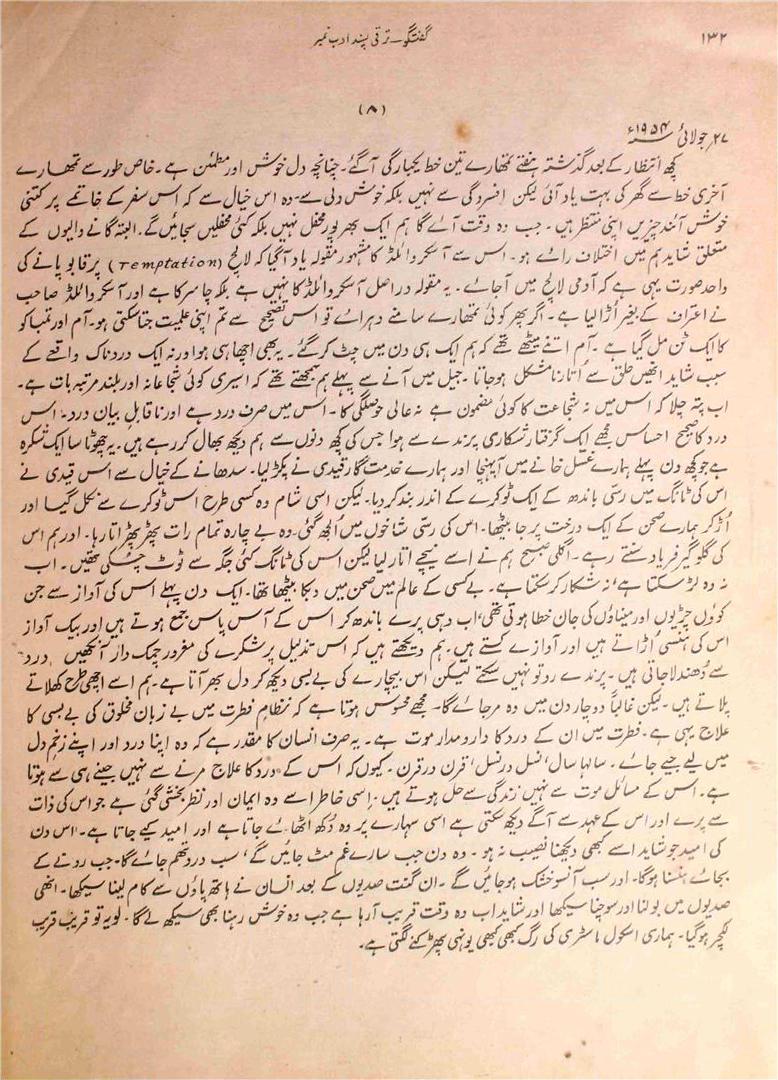 ۱۳۲
گفتگو۔ ترقی پسند ادب نمبر
(۸)
۲۷ر جولائی ۱۹۵۴ء
کچھ انتظار کے بعد گذشتہ ہفتے تمھارے تین خط یکبارگی آگئے۔ چنانچہ دل خوش اور مطمئن ہے۔ خاص طور سے تمھارے
آخری خط سے گھر کی بہت یاد آئی لیکن افسردگی سے نہیں بلکہ خوش دلی سے۔ وہ اس خیال سے کہ اس سفر کے خاتمے پر کتنی
خوش آئند چیزیں اپنی منتظر ہیں۔ جب وہ وقت آئے گا ہم ایک بھرپور محفل نہیں بلکہ کئی محفلیں سجائیں گے۔ البتہ گانے والیوں کے
متعلق شاید ہم میں اختلاف رائے ہو۔ اس سے آسکر وائلڈ کا مشہور مقولہ یاد آگیا کہ لالچ (Temptation) پر قابو پانے کی
واحد صورت یہی ہے کہ آدمی لالچ میں آجائے۔ یہ مقولہ دراصل آسکر وائلڈ کا نہیں ہے بلکہ چاسر کا ہے اور آسکر وائلڈ صاحب
نے اعتراف کے بغیر اُڑا لیا ہے۔ اگر پھر کوئی تمھارے سامنے دہرائے تو اس تصحیح سے تم اپنی علمیت جتا سکتی ہو۔ آم اور تمباکو
کا ایک ٹن مل گیا ہے۔ آم اتنے میٹھے تھے کہ ہم ایک ہی دن میں چٹ کر گئے۔ یہ بھی اچھا ہی ہوا ورنہ ایک دردناک واقعے کے
سبب شاید انھیں حلق سے اُتارنا مشکل ہو جاتا۔ جیل میں آنے سے پہلے ہم سمجھتے تھے کہ اسیری کوئی شجاعانہ اور بلند مرتبہ بات ہے۔
اب پتہ چلا کہ اس میں نہ شجاعت کا کوئی مضمون ہے نہ عالی حوصلگی کا۔ اس میں صرف درد ہے اور ناقابل بیان درد۔ اس
درد کا صحیح احساس مجھے ایک گرفتار شکاری پرندے سے ہوا جس کی کچھ دنوں سے ہم دیکھ بھال کر رہے ہیں۔ یہ چھوٹا سا ایک شکرہ
ہے جو کچھ دن پہلے ہمارے غسل خانے میں آپہنچا اور ہمارے خدمت گار قیدی نے پکڑ لیا۔ سدھانے کے خیال سے اس قیدی نے
اس کی ٹانگ میں رسی باندھ کے ایک ٹوکرے کے اندر بند کر دیا۔ لیکن اسی شام وہ کسی طرح اس ٹوکرے سے نکل گیا اور
اُڑ کر ہمارے صحن کے ایک درخت پر جا بیٹھا۔ اس کی رسی شاخوں میں الجھ گئی۔ وہ بے چارہ تمام رات پھڑپھڑاتا رہا۔ اور ہم اس
کی گلوگیر فریاد سنتے رہے۔ اگلی صبح ہم نے اسے نیچے اتار لیا لیکن اس کی ٹانگ کئی جگہ سے ٹوٹ چکی تھیں۔ اب
نہ وہ لڑ سکتا ہے، نہ شکار کر سکتا ہے۔ بے کسی کے عالم میں صحن میں دبکا بیٹھا تھا۔ ایک دن پہلے اس کی آواز سے جن
کوؤں چڑیوں اور میناؤں کی جان خطا ہوتی تھی، اب وہی پرے باندھ کر اس کے آس پاس جمع ہوتے ہیں اور بیک آواز
اس کی ہنسی اُڑاتے ہیں اور آوازے کستے ہیں۔ ہم دیکھتے ہیں کہ اس تذلیل پر شکرے کی مغرور چمک دار آنکھیں درد
سے دُھندلا جاتی ہیں۔ پرندے رو تو نہیں سکتے لیکن اس بیچارے کی بے بسی دیکھ کر دل بھر آتا ہے۔ ہم اسے اچھی طرح کھلاتے
پلاتے ہیں۔ لیکن غالباً دو چار دن میں وہ مر جائے گا۔ مجھے محسوس ہوتا ہے کہ نظام فطرت میں بے زبان مخلوق کی بے بسی کا
علاج یہی ہے۔ فطرت میں ان کے درد کا دارومدار موت ہے۔ یہ صرف انسان کا مقدر ہے کہ وہ اپنا درد اور اپنے زخم دل
میں لیے جیے جائے۔ سالہا سال، نسل در نسل، قرن در قرن۔ کیوں کہ اس کے درد کا علاج مرنے سے نہیں جینے ہی سے ہوتا
ہے۔ اس کے مسائل موت سے نہیں زندگی سے حل ہوتے ہیں۔ اسی خاطر اسے وہ ایمان اور نظر بخشی گئی ہے جو اس کی ذات
سے پرے اور اس کے عہد سے آگے دیکھ سکتی ہے اسی سہارے پر وہ دُکھ اٹھائے جاتا ہے اور امید کیے جاتا ہے۔ اس دن
کی امید جو شاید اسے کبھی دیکھنا نصیب نہ ہو۔ وہ دن جب سارے غم مٹ جائیں گے، سب درد تھم جائے گا۔ جب رونے کے
بجائے ہنسنا ہوگا۔ اور سب آنسو خشک ہو جائیں گے۔ ان گنت صدیوں کے بعد انسان نے ہاتھ پاؤں سے کام لینا سیکھا۔ انھی
صدیوں میں بولنا اور سوچنا سیکھا اور شاید اب وہ وقت قریب آرہا ہے جب وہ خوش رہنا بھی سیکھ لے گا۔ لو یہ تو قریب قریب
لکچر ہو گیا۔ ہماری اسکول ماسٹری کی رگ کبھی کبھی یونہی پھڑکنے لگتی ہے۔